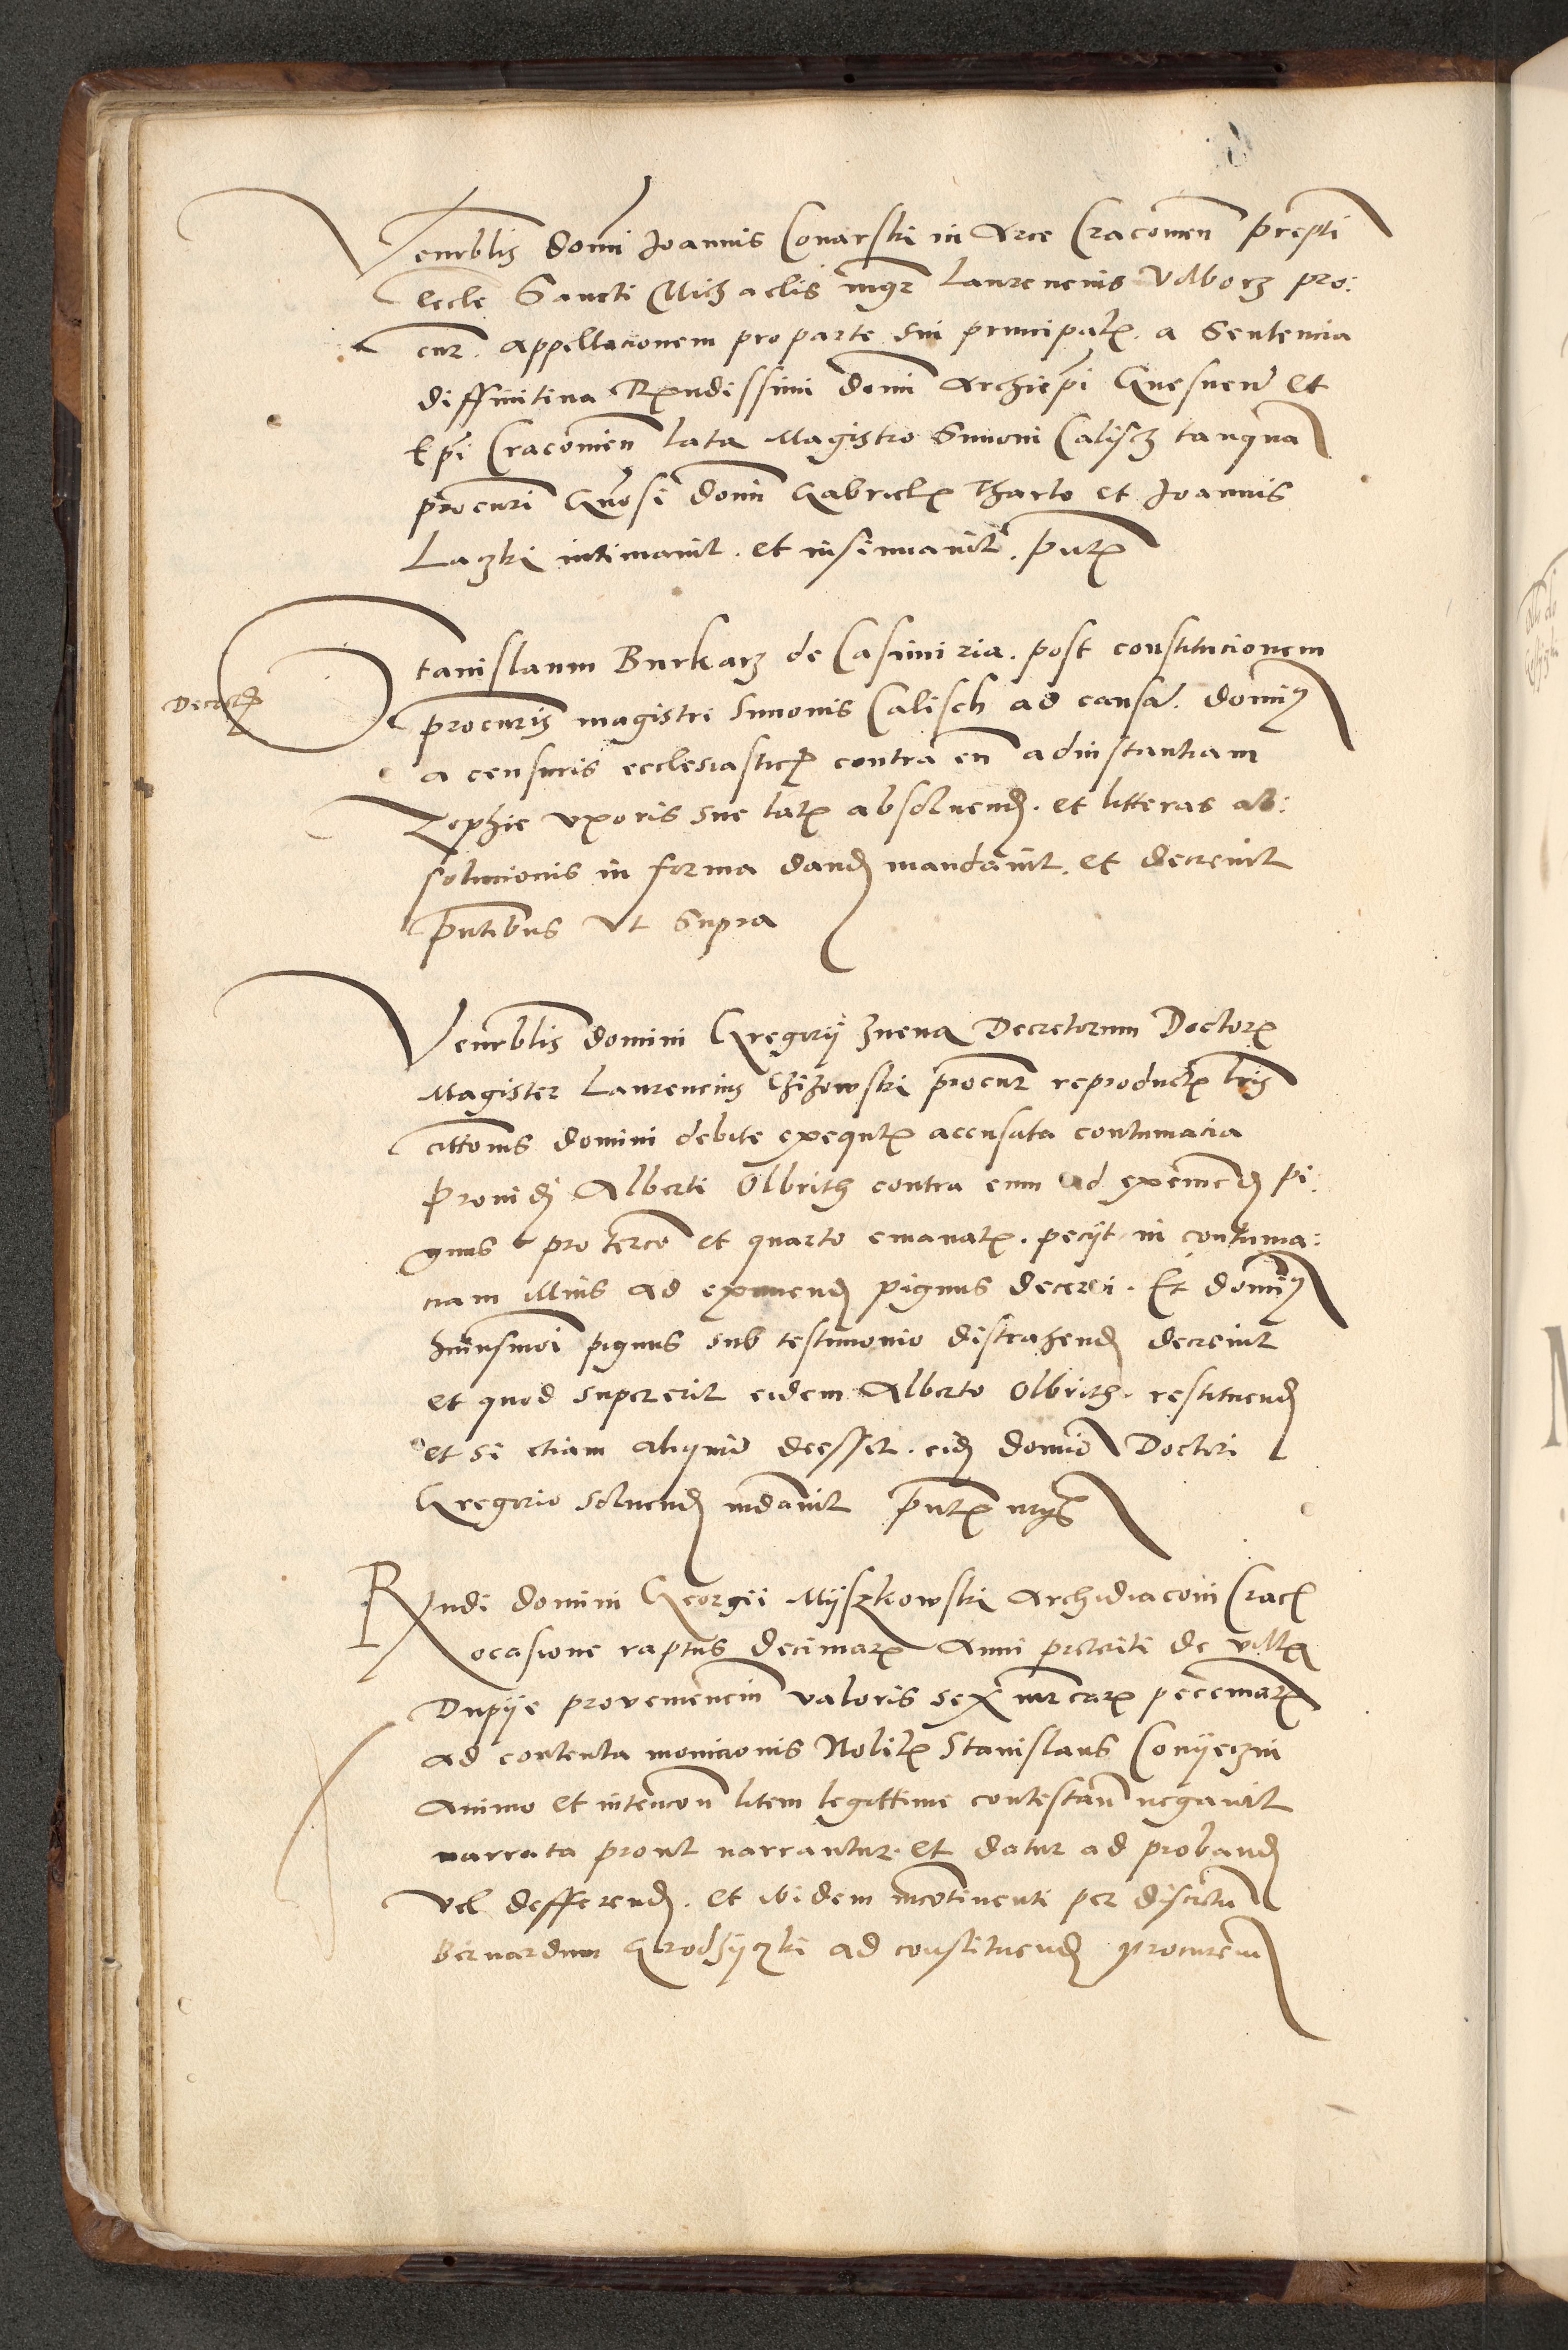 Venerblis domi Joannis Conarski in Arce Cracouien prepti
Eccle Sancti Michaelis mgr Laurencius Vilborz pro:
cur. appellacionem pro parte sui principalis. a Sentencia
diffinitiua Rendissimi domi Archiepi Gnesnen et
Epi Cracouien lata Magistro Simoni Calisch tanqua
procuri Gnosi domi Gabrielis Tharlo et Joannis
Laczki intimauit. et insinuauit. pntis
Decretum
Stanislaum Burkarz de Casimiria. post constitucionem
procuris magistri Simonis Calisch ad causa. dominus
a censuris ecclesiasticis contra eu ad instantiam
Zophie vxoris sue latis absoluend. et litteras ab:
solucionis in forma dand mandauit. et decreuit
pntibus vt Supra
Venerblis domini Gregorii Decretorum Doctoris
Magister Laurencius procur reproductis lris
cittonis domini debite exequtis accusata contumacia
Prouidi Alberti Olbrich contra eum ad eximend pi:
gnus pro terco et quarto emanatis. peciit in contuma:
ciam illius ad eximend pignus decerni. Et dominus
huiusmoi pignus sub testimonio distrahend decreuit
et quod supererit eidem Alberto Olbrich. restituend
et si etiam aliquid deesset. eid domino Doctori
Gregorio soluend mdauit pntis
Rndi domini Georgii Myszkowski Archidiaconi Crac
ocasione raptus decimaris Anni preteriti de villa
Dupije proueniencium valoris sex mrcaris peccuniaris
ad contenta monicionis Nobilis Stanislaus
Animo et intencon litem legittime contestan negauit
narrata prout narrantur. et datur ad proband
vel defferend. et ibidem incontinenti per discretu
Bernardum ad constituend procurem